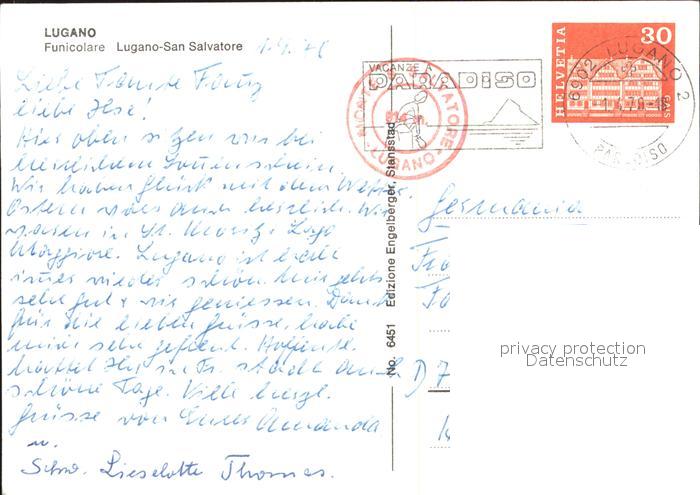 LUGANO
Funicolare Lugano-San Salvatore
Liebe Tante Fanny
liebe Ilse!
Hier oben sitzen wir bei
herrlichem Sonnenschein.
Wir haben Glück mit dem Wetter.
Ostern war auch herrlich. Wir
waren in St. Moritz, Lago
Maggiore. Lugano ist halt
immer wieder schön. Mir gehts
sehr gut & wir geniessen. Danke
für die lieben Grüsse, habe
mich sehr gefreut. Hoffentl.
hattet Ihr in Fr. städt auch
schöne Tage. Viele herzl.
Grüsse von Eurer Amanda
u.
Schw. Lieselotte Thomas.
No. 6451 Edizione Engelberger, Stansstad
VACANZE A
PARADISO
SALVATORE
LUGANO
HELVETIA
30
GAIS
6902 LUGANO 2
PARADISO
Germania
D 7
privacy protection
Datenschutz